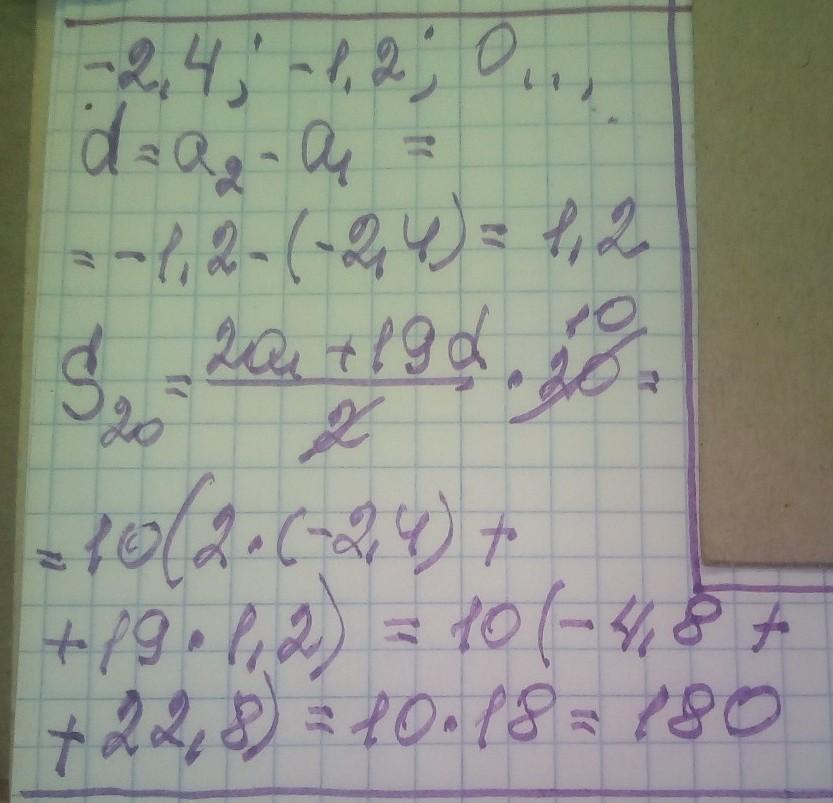 -2,4; -1,2; 0...,
d = a₂ - a₁ =
= -1,2 - (-2,4) = 1,2
S₂₀ = (2a₁ + 19d)/2 · 20 10 =
= 10(2 · (-2,4) +
+ 19 · 1,2) = 10(-4,8 +
+ 22,8) = 10 · 18 = 180